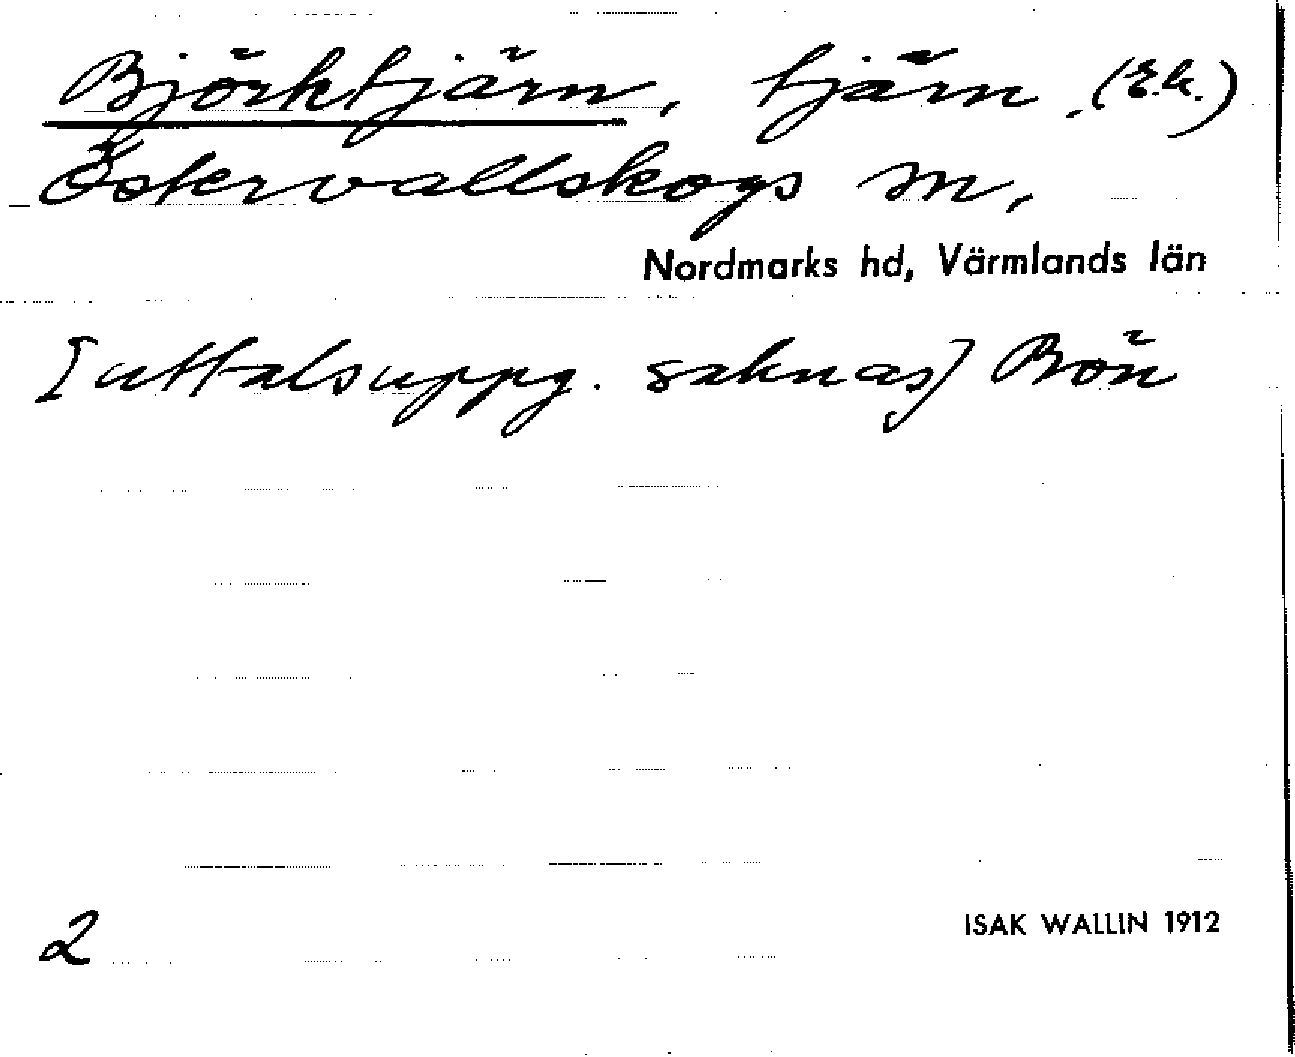 Björktjärn, tjärn. (Ek.)
Östervallskogs sn,
Nordmarks hd, Värmlands län
[uttalsuppg. saknas] Bön
2
ISAK WALLIN 1912